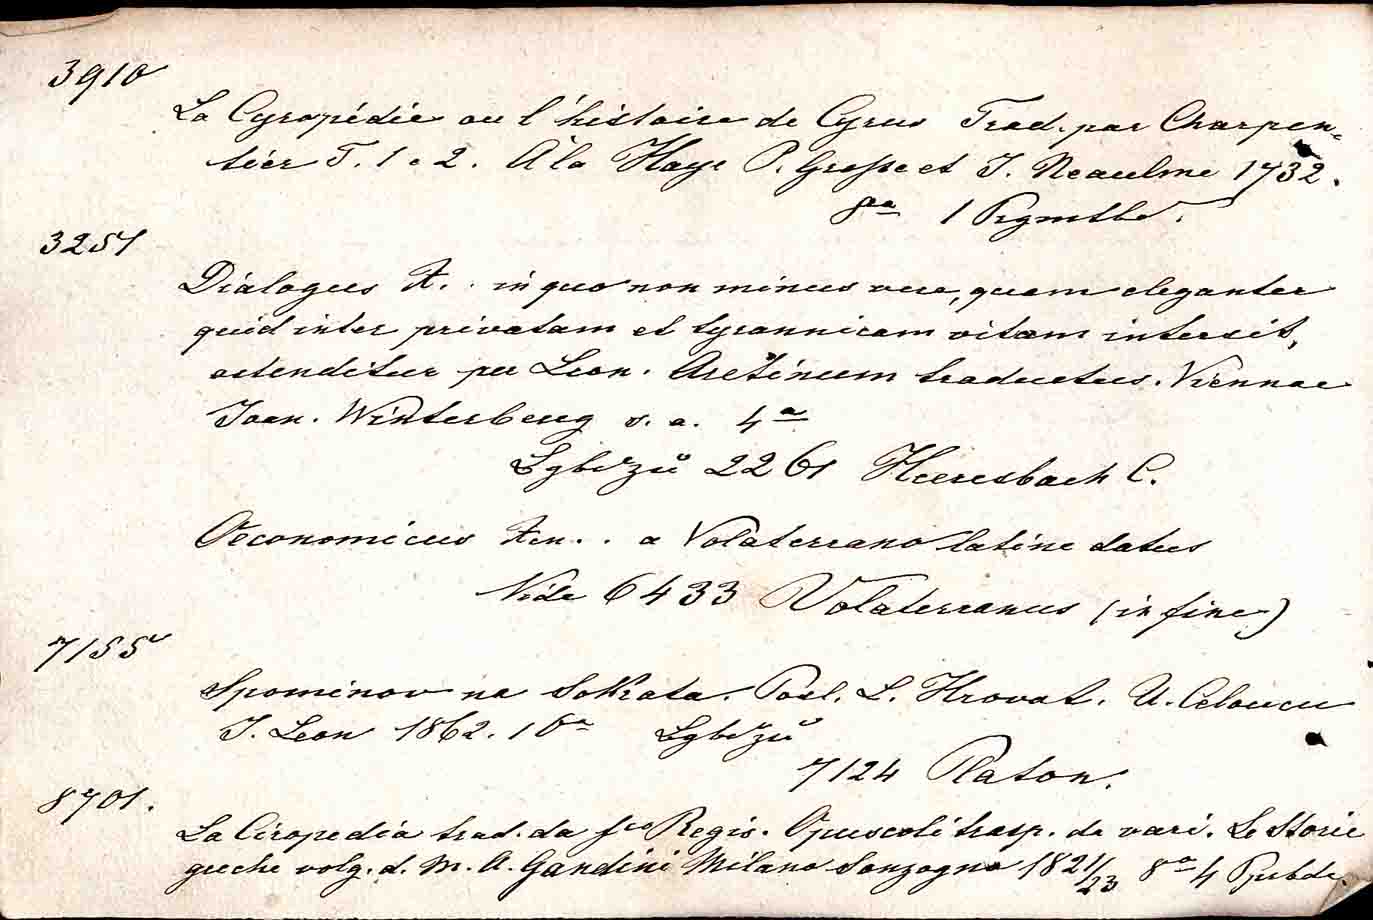 3910
La Cyropédie ou l'histoire de Cyrus Trad. par Charpen-
tier T. 1 e 2. À la Haye P. Grosse et J. Neaulme 1732.
8va 1
3251
Dialogus X. . in quo non minus vere, quam eleganter
quid inter privatam et tyrannicam vitam intersit,
ostenditur per Leon. Aretinum traductus. Viennae
Joan. Winterberg s. a. 4a
2261 Heeresbach C.
Oeconomicus Xen. . a Volaterrano latine datus
Vide 6433 Volaterranus (in fine)
7155
Spominov na Sokrata. Posl. L. Hrovat. U. Celovcu
J. Leon 1862. 16a
7124 Platon.
8701.
La Ciropedia trad. da Regis. Opuscoli trasp. da vari. Le Storie
greche volg. d. M. A. Gandini Milano Sonzogno 1821/23 8o 4